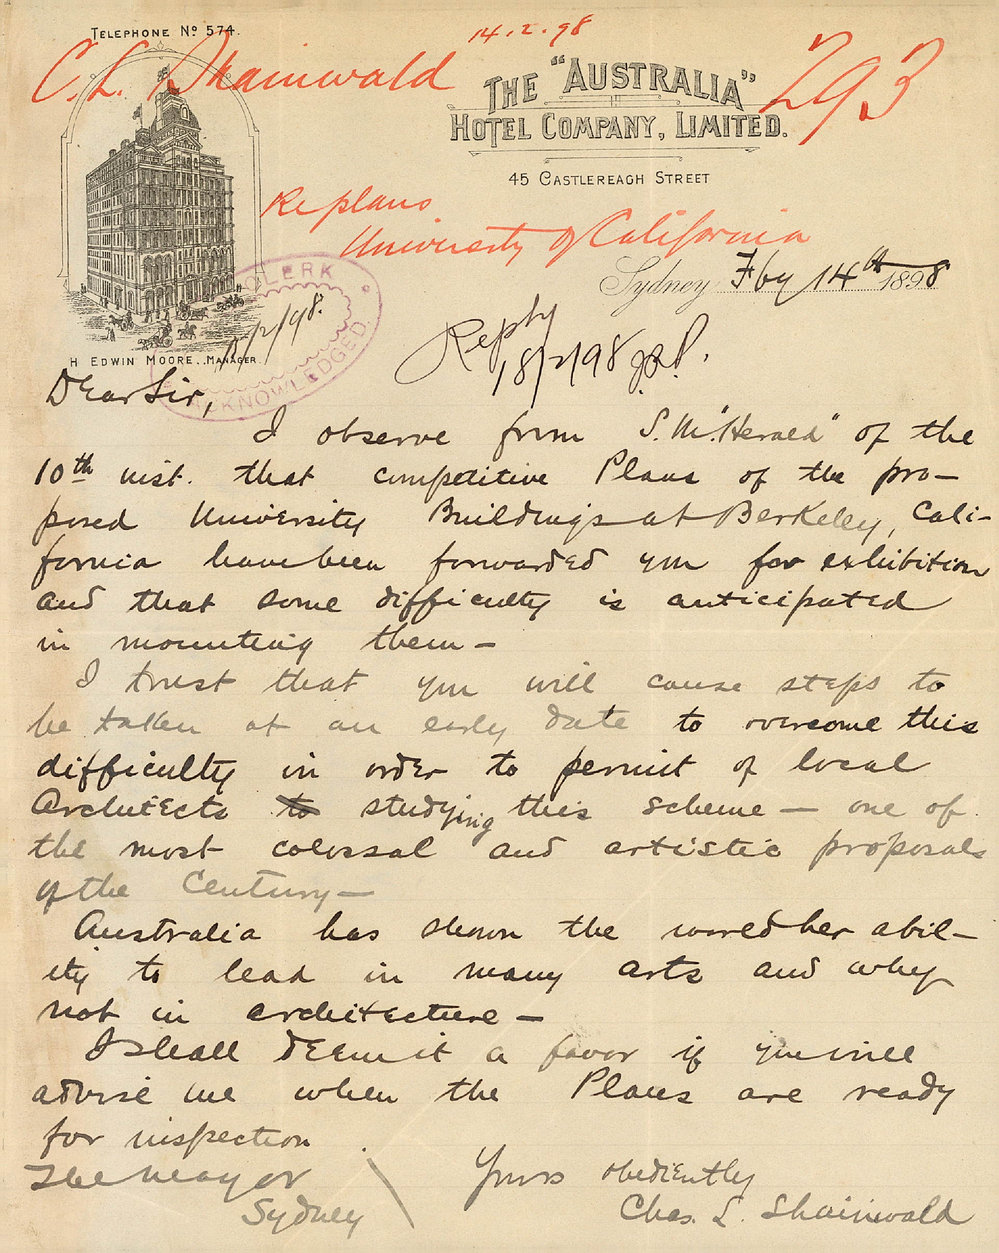 TELEPHONE No 574.
14.2.98
C. L. Shainwald
293
THE "AUSTRALIA"
HOTEL COMPANY, LIMITED.
45 CASTLEREAGH STREET
Re plans
University of California
Sydney Fby 14th 1898
CLERK
ACKNOWLEDGED.
/2/98.
Reply
18/2/98
H EDWIN MOORE. MANAGER.
Dear Sir,
I observe from S. M. "Herald" of the
10th inst. that competitive Plans of the pro-
posed University Buildings at Berkeley, Cali-
fornia have been forwarded you for exhibition
and that some difficulty is anticipated
in mounting them -
I trust that you will cause steps to
be taken at an early date to overcome this
difficulty in order to permit of local
Architects to studying this scheme - one of
the most colossal and artistic proposals
of the Century -
Australia has shown the world her abil-
ity to lead in many arts and why
not in architecture -
I shall deem it a favor if you will
advise me when the Plans are ready
for inspection
The Mayor
Sydney
Yours obediently
Chas. L. Shainwald